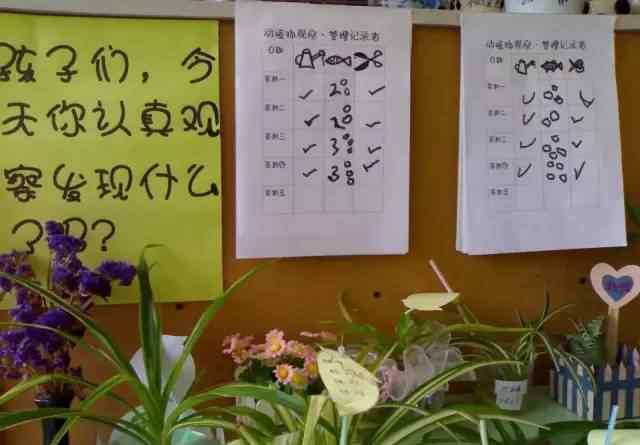 孩子们，今
天你认真观
察发现什么
了吗?
动植物观察、管理记录表
日期
星期一 2
星期二 2
星期三 3
星期四 3
星期五
动植物观察、管理记录表
日期
星期一
星期二
星期三
星期四
星期五